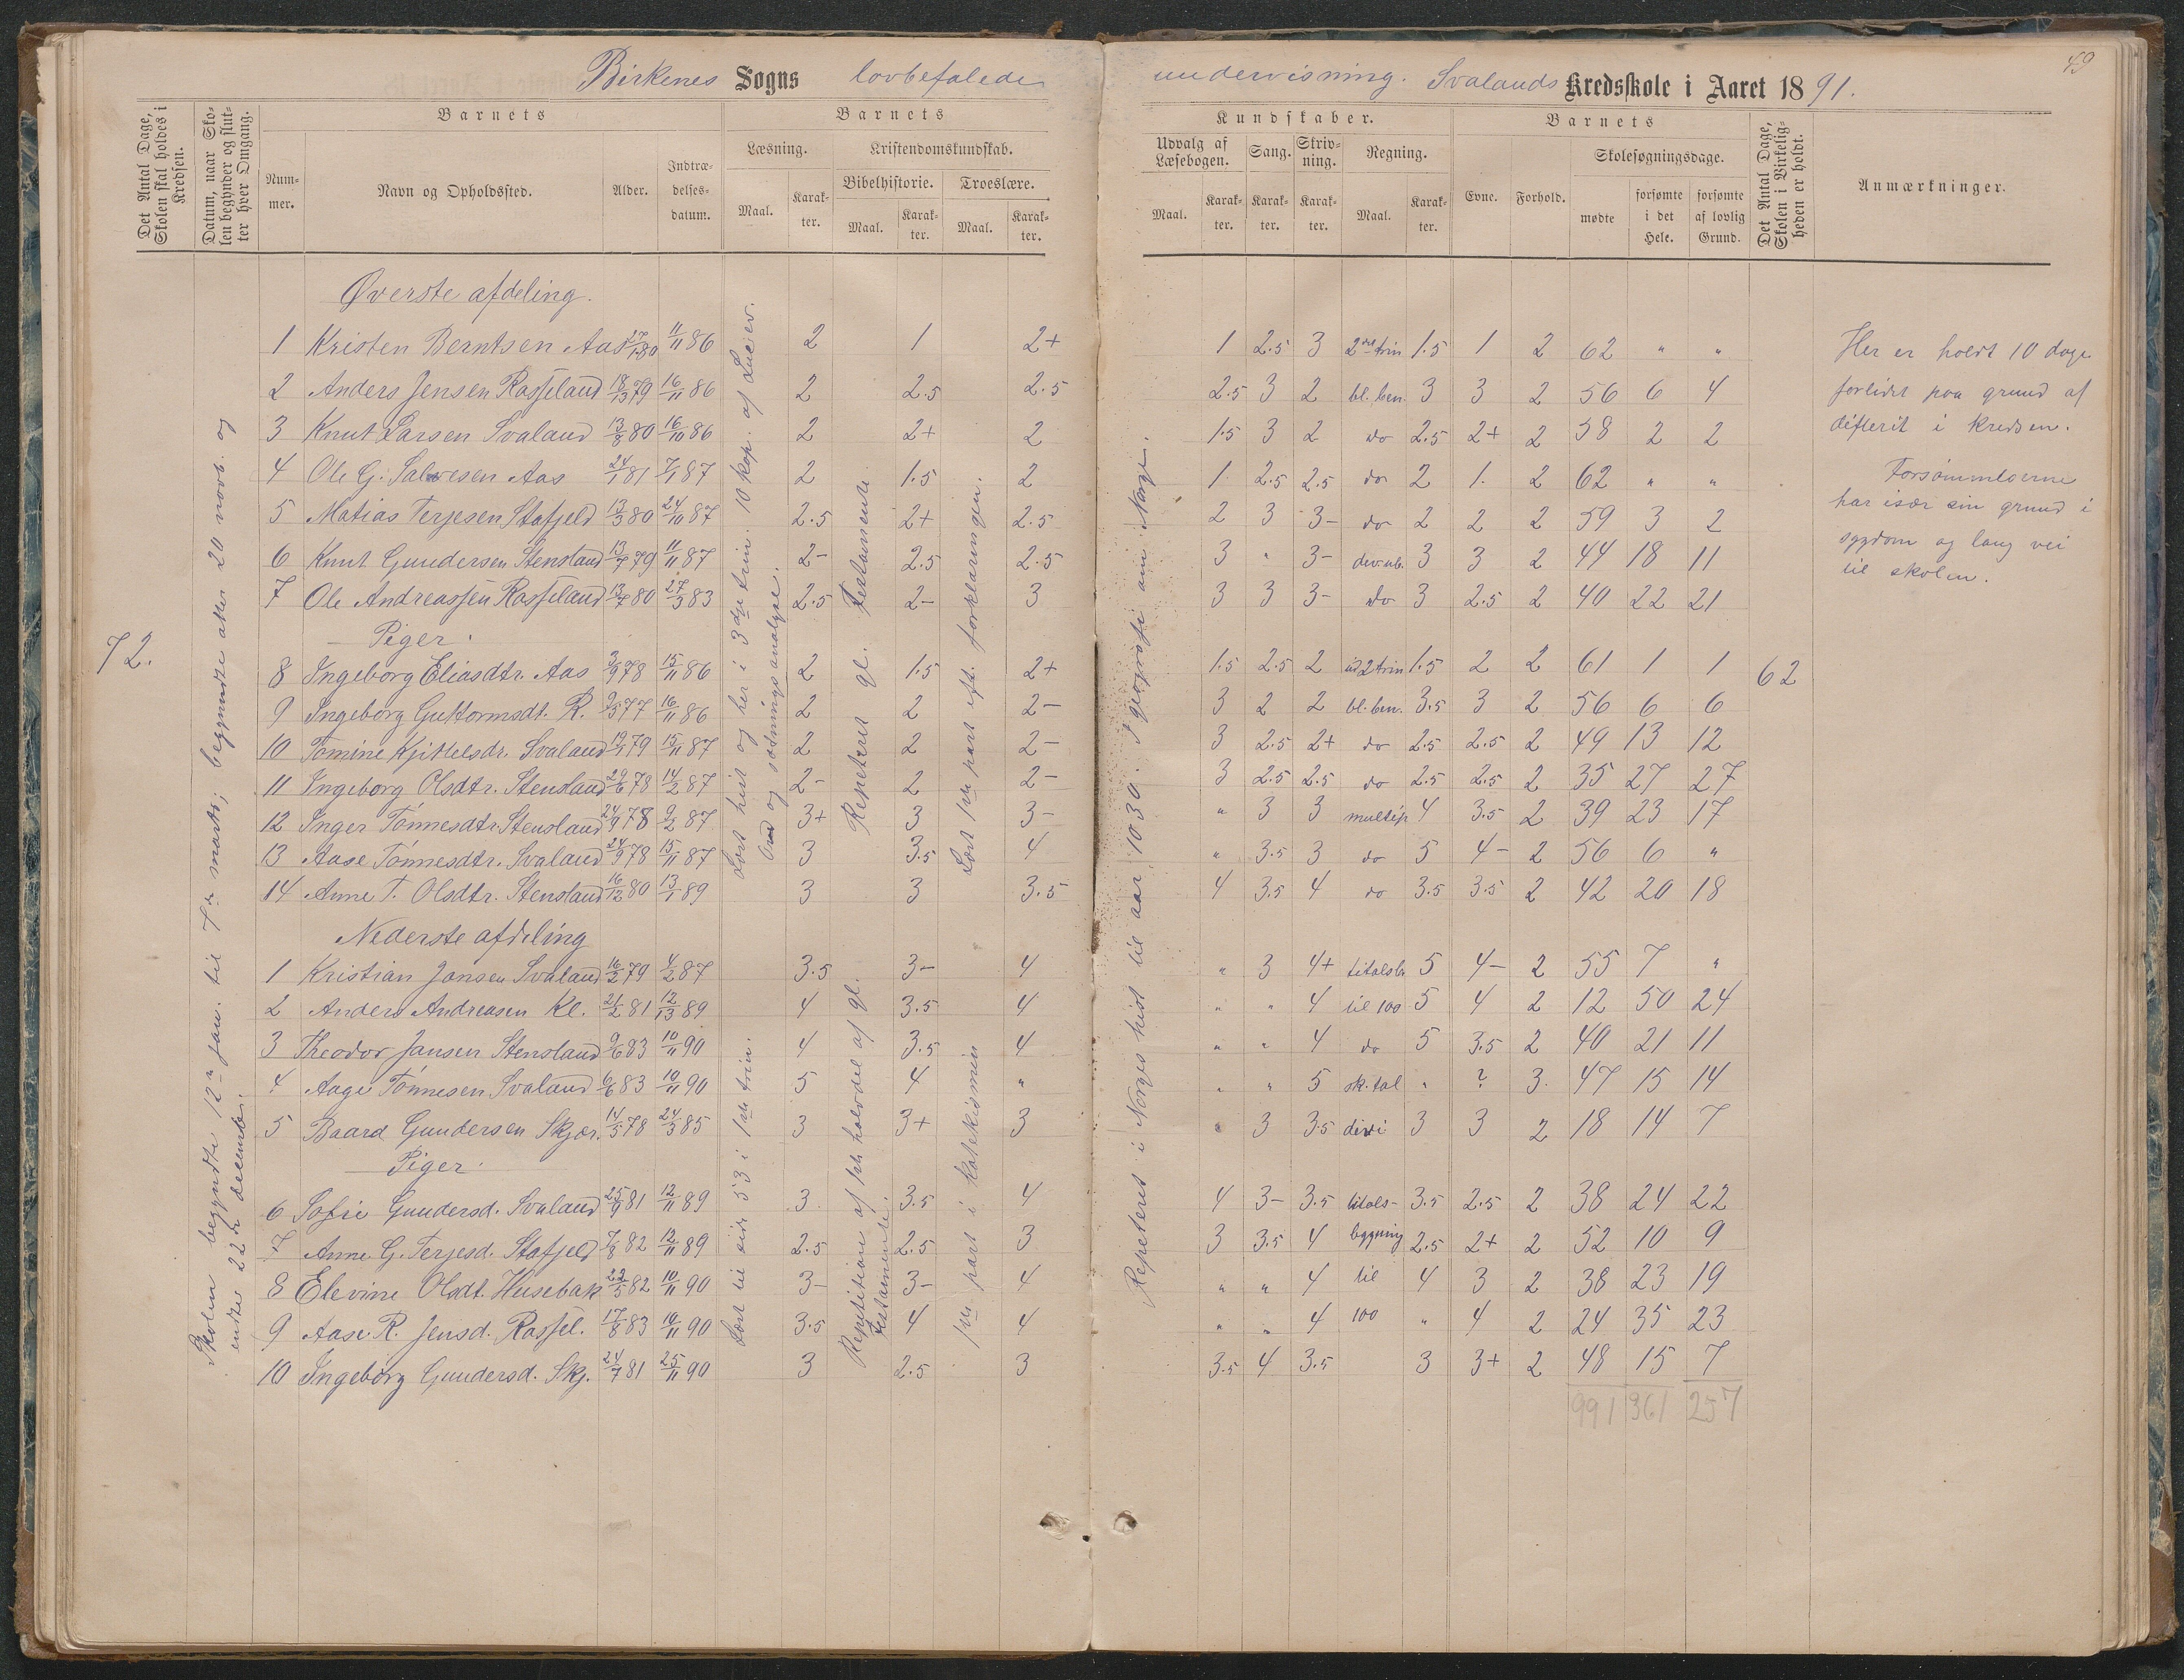 49
Birkenes Sogns lovbefalede undervisning. Svalands Kredsskole i Aaret 1891.
Det Antal Dage, Skolen skal holdes i Kredsen.
Datum, naar Skolen begynder og slutter hver Omgang.
Barnets
Nummer.
Navn og Opholdssted.
Alder.
Indtrædelsesdatum.
Barnets
Læsning.
Maal.
Karakter.
Kristendomskundskab.
Bibelhistorie.
Maal.
Karakter.
Troeslære.
Maal.
Karakter.
Kundskaber.
Udvalg af Læsebogen.
Maal.
Karakter.
Sang.
Karakter.
Skrivning.
Karakter.
Regning.
Maal.
Karakter.
Barnets
Evne.
Forhold.
Skolesøgningsdage.
mødte
forsømte i det Hele.
forsømte af lovlig Grund.
Det Antal Dage, Skolen i Virkeligheden er holdt.
Anmærkninger.
72.
Skolen begyndte 12te jan. til 7de marts; begyndte atter 20 novb. og
endte 22de december.
Øverste afdeling.
1 Kristen Berntsen Aas 27/1 80 11/11 86 2 1 2+ 1 2.5 3 2det trin 1.5 1 2 62 " "
2 Anders Jensen Rosseland 18/3 79 16/11 86 2 2.5 2.5 2.5 3 2 bl. ben. 3 3 2 56 6 4
3 Knut Larsen Svaland 13/8 80 16/10 86 2 2+ 2 1.5 3 2 do 2.5 2+ 2 58 2 2
4 Ole G. Salvesen Aas 24/1 81 7/1 87 2 1.5 2 1 2.5 2.5 do 2 1. 2 62 " "
5 Matias Terjesen Stafjeld 13/3 80 24/10 87 2.5 2+ 2.5 2 3 3- do 2 2 2 59 3 2
6 Knut Gundersen Stensland 13/7 79 11/11 87 2- 2.5 2.5 3 " 3- 3 3 2 44 18 11
7 Ole Andreassen Rosseland 13/7 80 27/3 83 2.5 2- 3 3 3 3- do 3 2.5 2 40 22 21
Piger.
8 Ingeborg Eliasdtr. Aas 3/9 78 15/11 86 2 1.5 2+ 1.5 2.5 2 2 trin 1.5 2 2 61 1 1 62
9 Ingeborg Guttormsdt. R. 9/5 77 16/11 86 2 2 2- 3 2 2 bl. ben. 3.5 3 2 56 6 6
10 Tomine Kjittelsdr. Svaland 19/1 79 15/11 87 2 2 2- 3 2.5 2+ do 2.5 2.5 2 49 13 12
11 Ingeborg Olsdtr. Stensland 29/6 78 14/2 87 2- 2 2- 3 2.5 2.5 do 2.5 2.5 2 35 27 27
12 Inger Tönnesdtr. Stensland 24/9 78 9/2 87 3+ 3 3- " 3 3 multip 4 3.5 2 39 23 17
13 Aase Tönnesdtr. Svaland 24/9 78 15/11 87 3 3.5 4 " 3.5 3 do 5 4- 2 56 6 "
14 Anne T. Olsdtr. Stensland 16/12 80 13/1 89 3 3 3.5 4 3.5 4 do 3.5 3.5 2 42 20 18
Nederste afdeling
1 Kristian Jansen Svaland 16/2 79 4/2 87 3.5 3- 4 " 3 4+ 5 4- 2 55 7 "
2 Anders Andreasen Kl. 21/2 81 12/13 89 4 3.5 4 " " 4 til 100 5 4 2 12 50 24
3 Theodor Jansen Stensland 9/6 83 10/11 90 4 3.5 4 " " 4 do 5 3.5 2 40 21 11
4 Aage Tönnesen Svaland 6/6 83 10/11 90 5 4 " " " 5 sk. tal " ? 3. 47 15 14
5 Baard Gundersen Skjær. 14/5 78 24/3 85 3 3+ 3 " 3 3.5 divi 3 3 2 18 14 7
Piger.
6 Sofie Gundersd. Svaland 25/9 81 12/11 89 3 3.5 4 4 3- 3.5 titals- 3.5 2.5 2 38 24 22
7 Anne G. Terjesd. Stafjeld 7/8 82 12/11 89 2.5 2.5 3 3 3.5 4 lægning 2.5 2+ 2 52 10 9
8 Elevine Olsdt. Husebak 22/5 82 10/11 90 3- 3- 4 " " 4 til 4 3 2 38 23 19
9 Aase R. Jensd. Rossel. 17/8 83 10/11 90 3.5 4 4 " " 4 100 " 4 2 24 35 23
10 Ingeborg Gundersd. Skj. 24/7 81 25/11 90 3 2.5 3 3.5 4 3.5 3 3+ 2 48 15 7
991 361 257
Læst hist og her i 3dje trin. 10 kap. af Lucier.
Ord og sætningsanalyse.
Repeteret gl. Testamente
Læst 1ste part eft. forklaringen.
Læst til side 53 i 1ste trin.
Repetition af 1ste halvdel af gl.
Testamente.
1ste part i Katekismen
Repeteret i Norges hist til aar 1030. I geografi om Norge.
Her er holdt 10 dage
forlidet paa grund af
difterit i kredsen.
Forsömmelserne
har især sin grund i
sygdom og lang vei
til skolen.